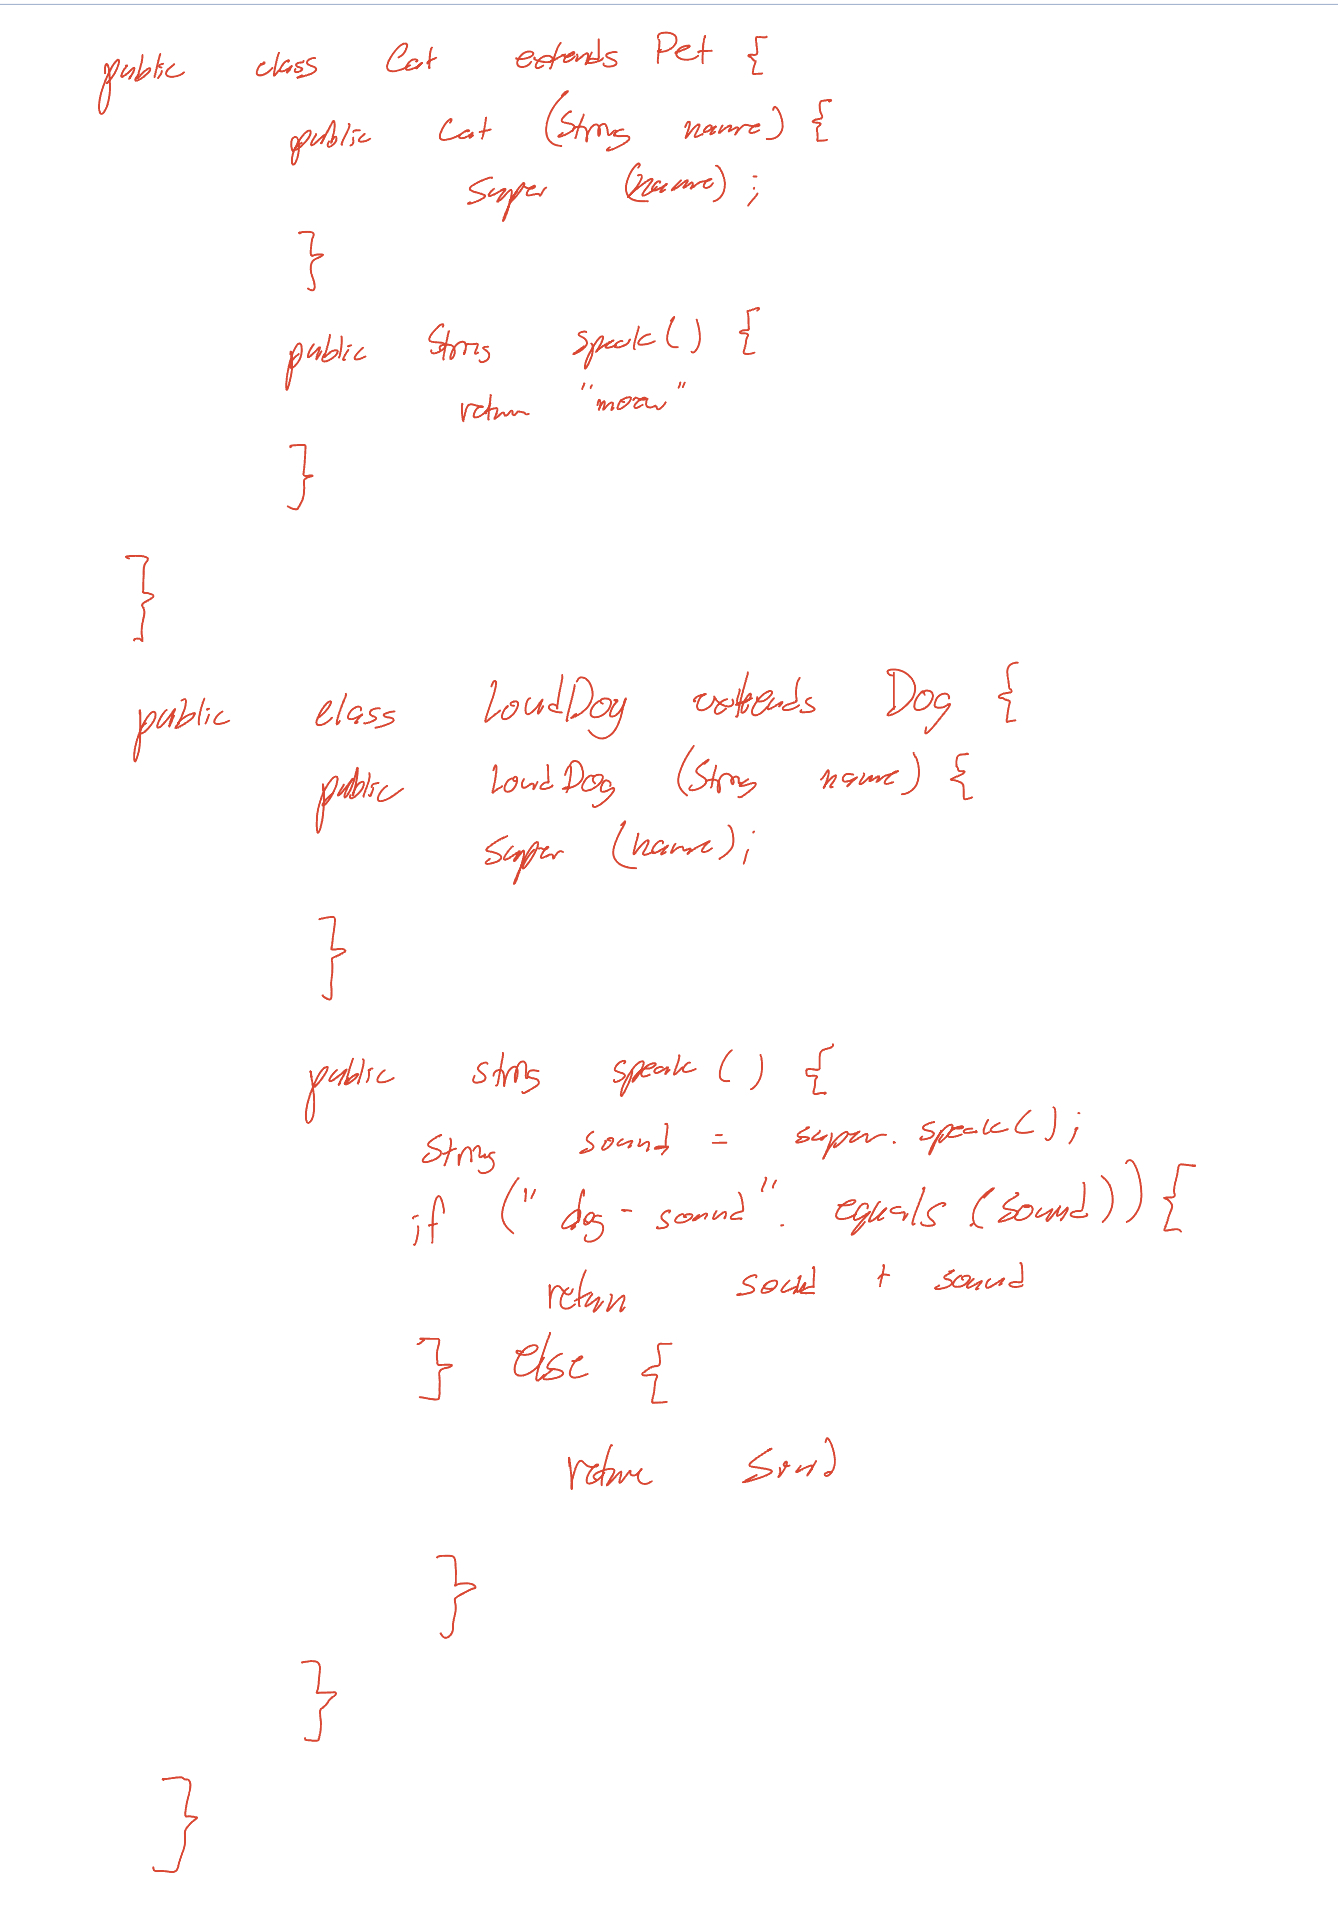 public class Cat extends Pet {
public Cat (String name) {
super (name) ;
}
public String speak() {
return "meow"
}
}
public class LoudDog extends Dog {
public LoudDog (String name) {
super (name);
}
public string speak () {
String sound = super. speak();
if ("dog-sound". equals (sound)) {
return sound + sound
} else {
return sound
}
}
}